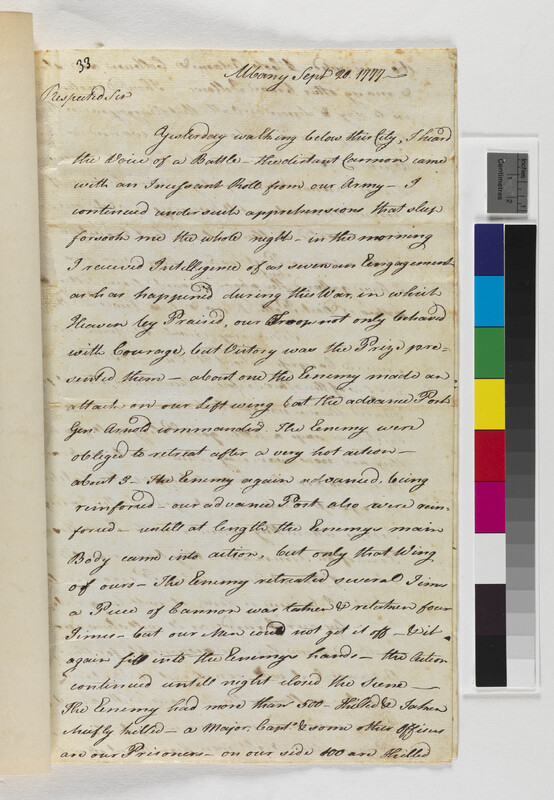 33
Albany Sept 20. 1777—
Respected Sir
Yesterday walking below this City, I heard
the Voice of a Battle – the distant Cannon came
with an Incessant Roll from our Army – I
continued under such apprehensions that sleep
forsook me the whole night – in the morning
I received Intelligence of as severe an Engagement
as has happened during this War, in which
Heaven be Praised, our Troops not only behaved
with Courage, but Victory was the Prize pre-
sented them – about one the Enemy made an
attack on our Left wing & at the advance Post
Gen. Arnold commanded. The Enemy were
obliged to retreat after a very hot action –
about 3 – the Enemy again advanced, being
reinforced – our advance Post also were rein-
forced – untill at length the Enemys main
Body came into action, but only that Wing
of ours – The Enemy retreated several Times
a Piece of Cannon was taken & retaken four
Times – but our Men could not get it off – & it
again fell into the Enemys hands – the Action
continued untill night closed the Scene —
The Enemy had more than 500 – Killed & Taken
cheifly killed – a Major, Capt. & some other Officers
are our Prisoners – on our side 100 are Killed
Centimetres